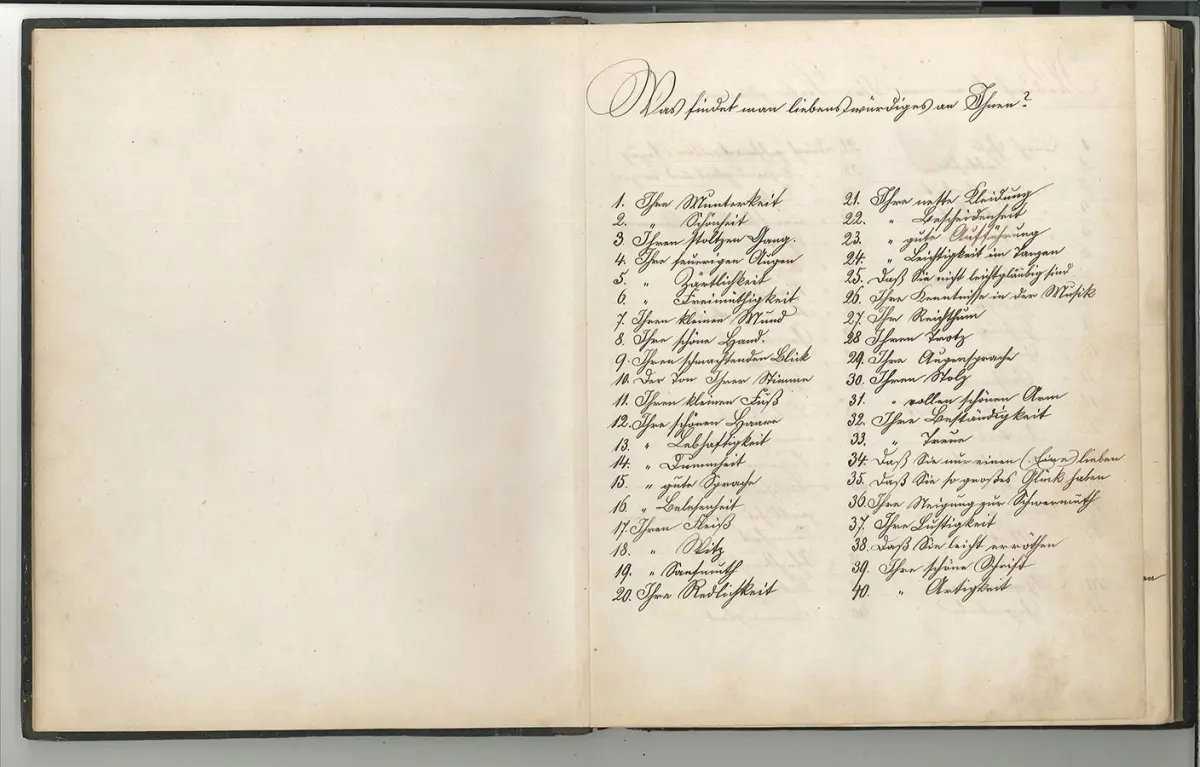 Was findet man liebenswürdiges an Ihnen?
1. Ihre Munterkeit
2. " Schönheit
3. Ihren stoltzen Gang.
4. Ihre feuerigen Augen
5. " Zärtlichkeit
6. " Freimüthigkeit
7. Ihren kleinen Mund
8. Ihre schöne Hand.
9. Ihren schmachtenden Blick
10. Der Ton Ihrer Stimme
11. Ihren kleinen Fuß
12. Ihre schönen Haare
13. " Lebhaftigkeit
14. " Dummheit
15. " gute Sprache
16. " Belesenheit
17. Ihren Fleiß
18. " Witz
19. " Sanfmuth
20. Ihre Redlichkeit
21. Ihre nette Kleidung
22. " Bescheidenheit
23. " gute Aufführung
24. " Leichtigkeit im Tanzen
25. Daß Sie nicht leichtgläubig sind
26. Ihre Kenntnisse in der Musik
27. Ihr Reichthum
28 Ihren Trotz
29. Ihre Augensprache
30. Ihren Stolz
31. " vollen schönen Arm
32. Ihre Beständigkeit
33. " Treue
34. Daß Sie nur einen (Eine) lieben
35. Daß Sie so großes Glück haben
36. Ihre Neigung zur Schwermuth
37. Ihre Lustigkeit
38. Daß Sie leicht erröthen
39. Ihre schöne Schrift
40. " Artigkeit